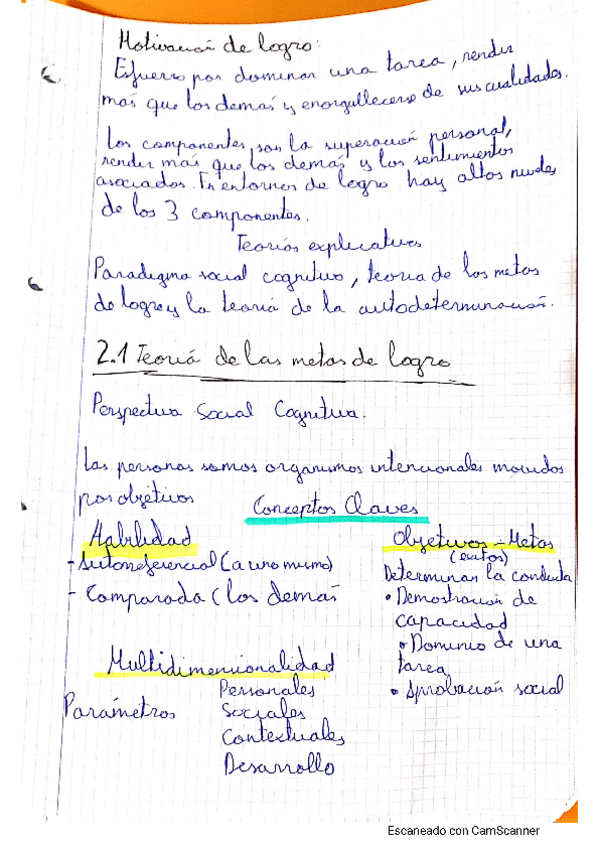 Motivación de logro:
Esfuerzo por dominar una tarea, rendir
más que los demás y enorgullecerse de sus cualidades.
Los componentes son la superación personal,
rendir más que los demás y los sentimientos
asociados. En entornos de logro hay altos niveles
de los 3 componentes.
Teorías explicativas
Paradigma social cognitivo, teoría de las metas
de logro y la teoría de la autodeterminación.
2.1 Teoría de las metas de logro
Perspectiva Social Cognitiva.
Las personas somos organismos intencionales movidos
por objetivos
Conceptos Claves
Habilidad
- Autoreferencial (a uno mismo)
- Comparada (los demás
Objetivos - Metas
(exitos)
Determinan la conducta
• Demostración de
capacidad
• Dominio de una
tarea
• Aprobación social
Multidimencionalidad
Parámetros
Personales
Sociales
Contextuales
Desarrollo
Escaneado con CamScanner